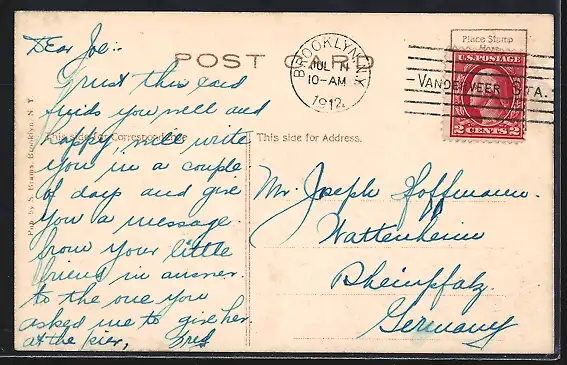 Dear Joe:-
Trust this card
finds you well and
happy, will write
you in a couple
of days and give
you a message
from your little
friend in answer
to the one you
asked me to give her
at the pier, Fred
POST CARD
This side for Correspondence
This side for Address.
Pub. by S. Brooklyn, N. Y.
BROOKLYN, N.Y.
JUL
10-AM
1912
VANDERVEER STA.
Place Stamp
Here
U.S. POSTAGE
2 CENTS 2
Mr. Joseph Hoffmann.
Wattenheim
Rheinpfalz.
Germany